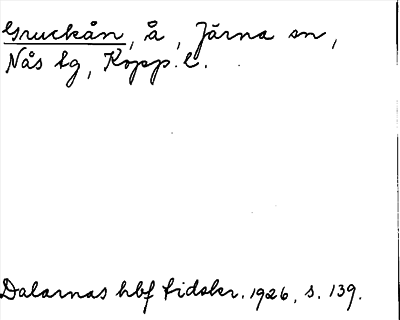 Gruckån, å, Järna sn,
Nås tg, Kopp. l.
Dalarnas hbf tidskr. 1926, s. 139.